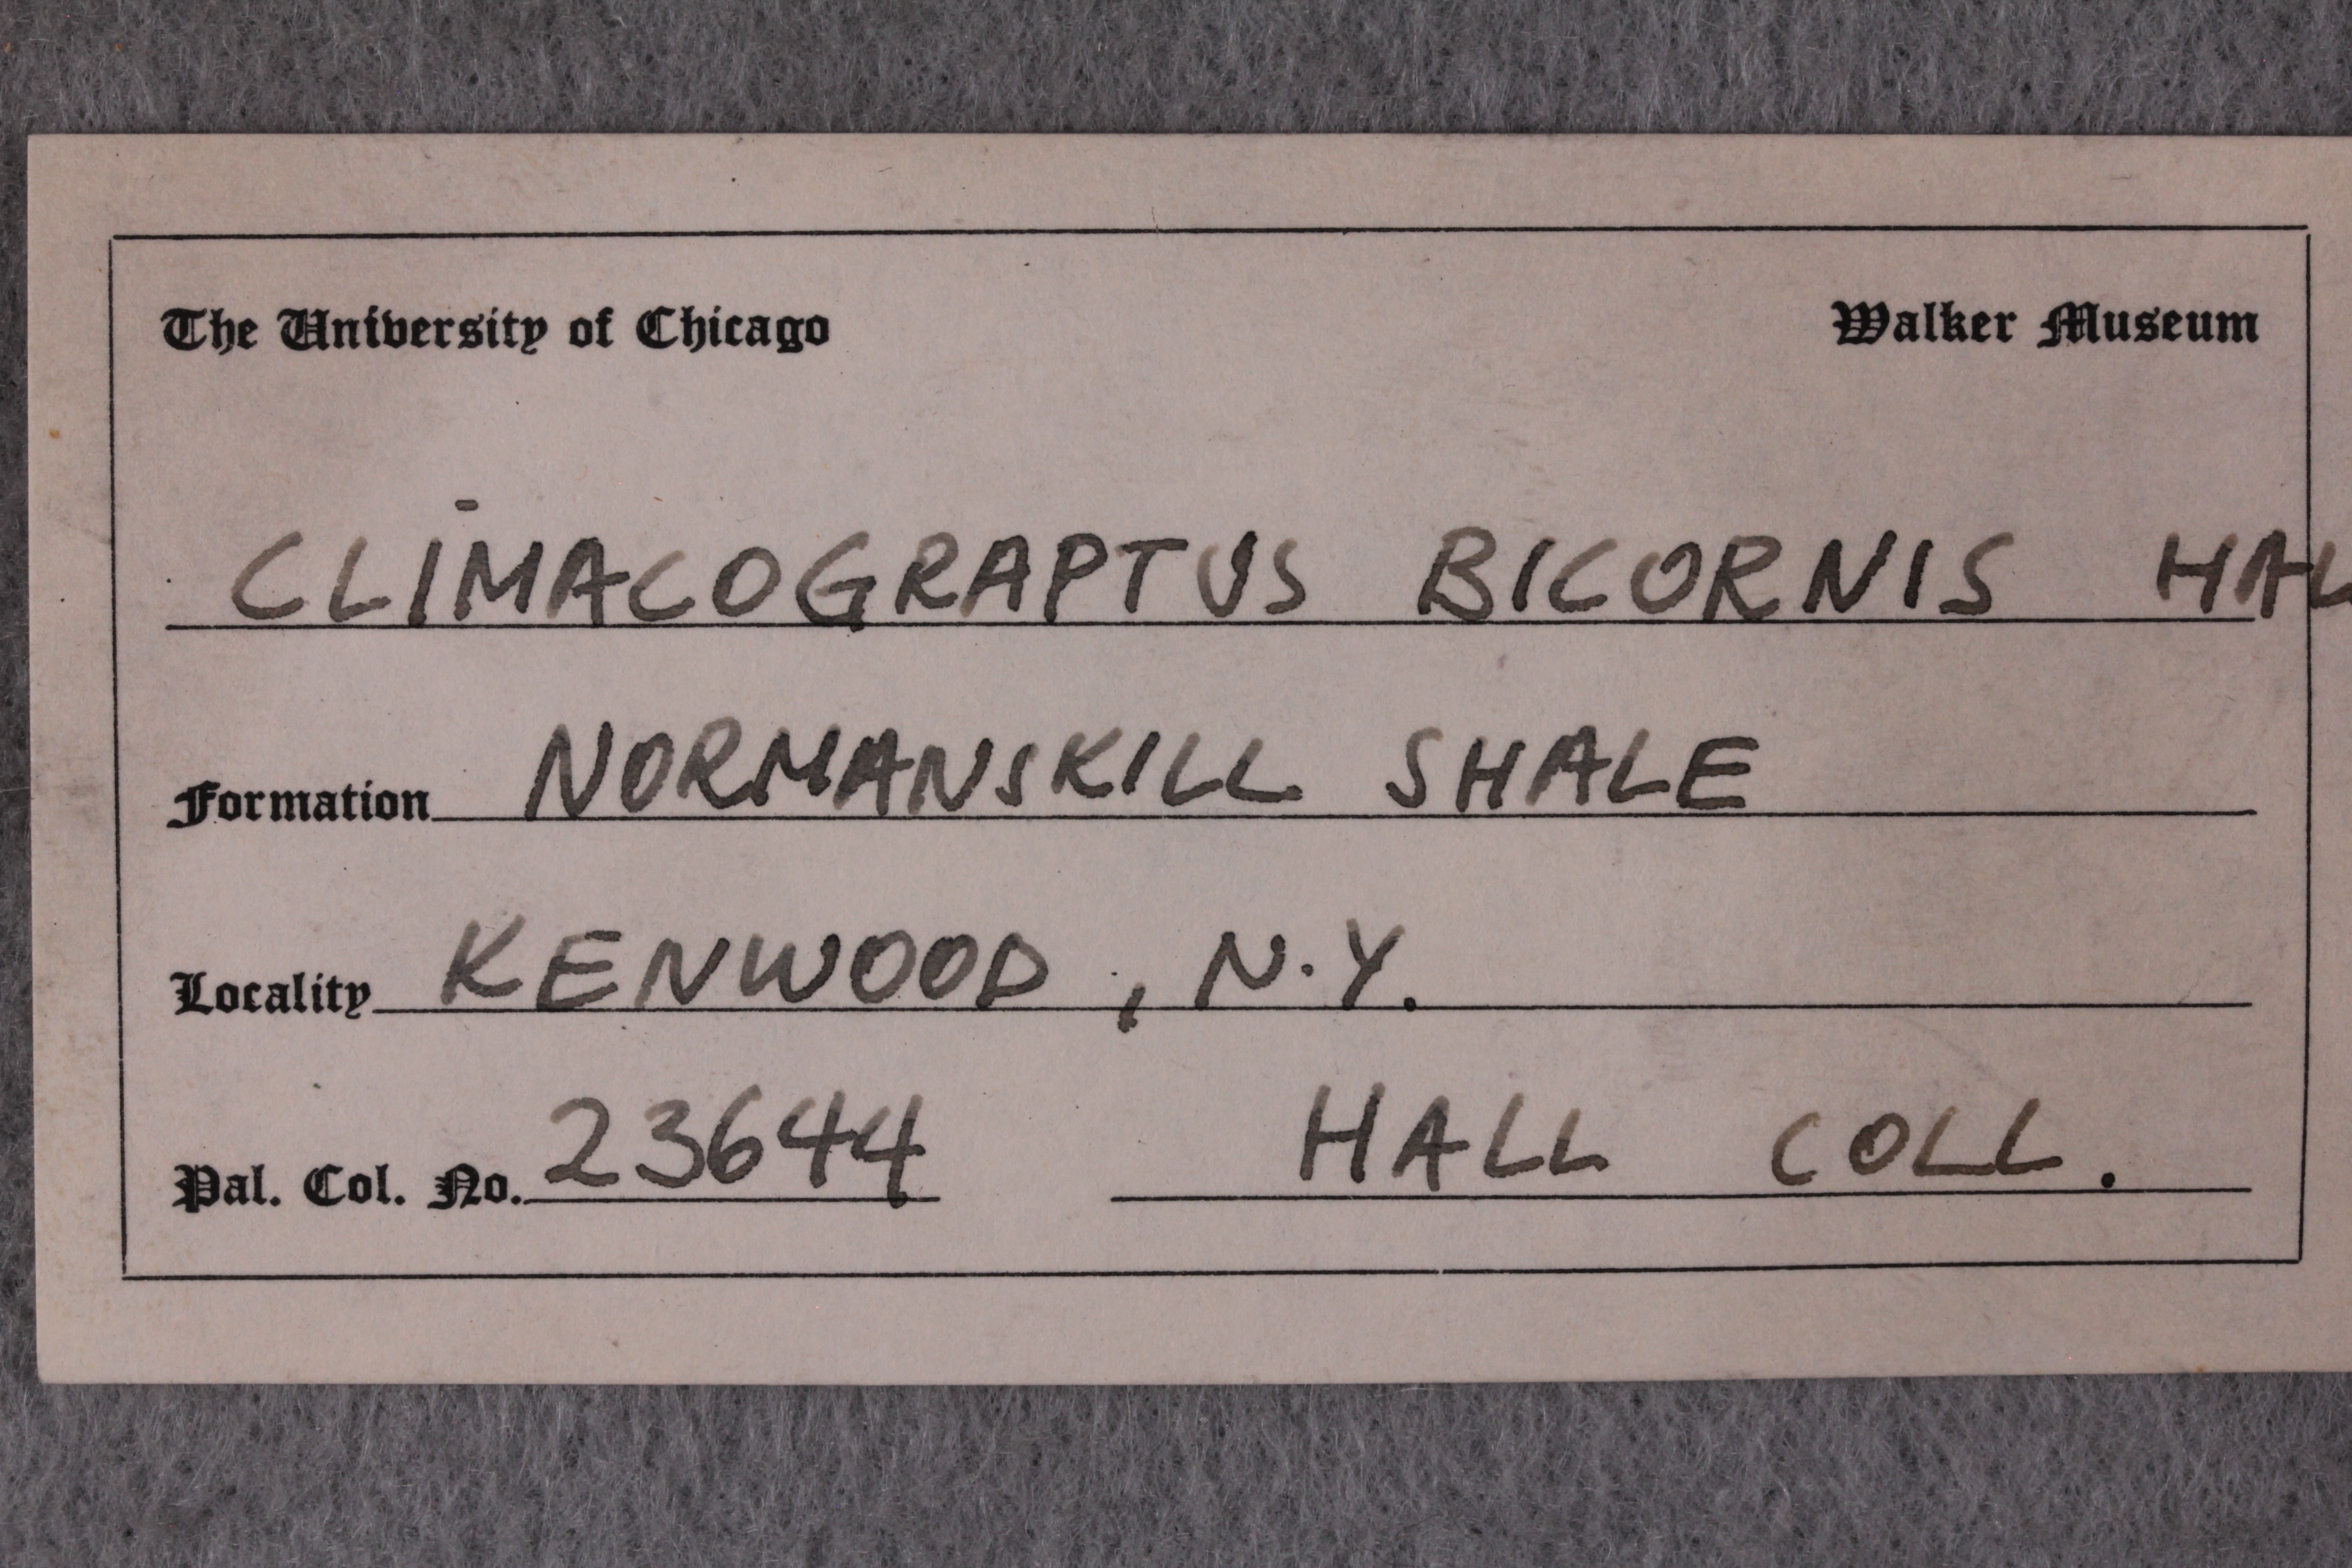 The University of Chicago Walker Museum
CLIMACOGRAPTUS BICORNIS HAL
Formation NORMANSKILL SHALE
Locality KENWOOD, N.Y.
Pal. Col. No. 23644 HALL COLL.